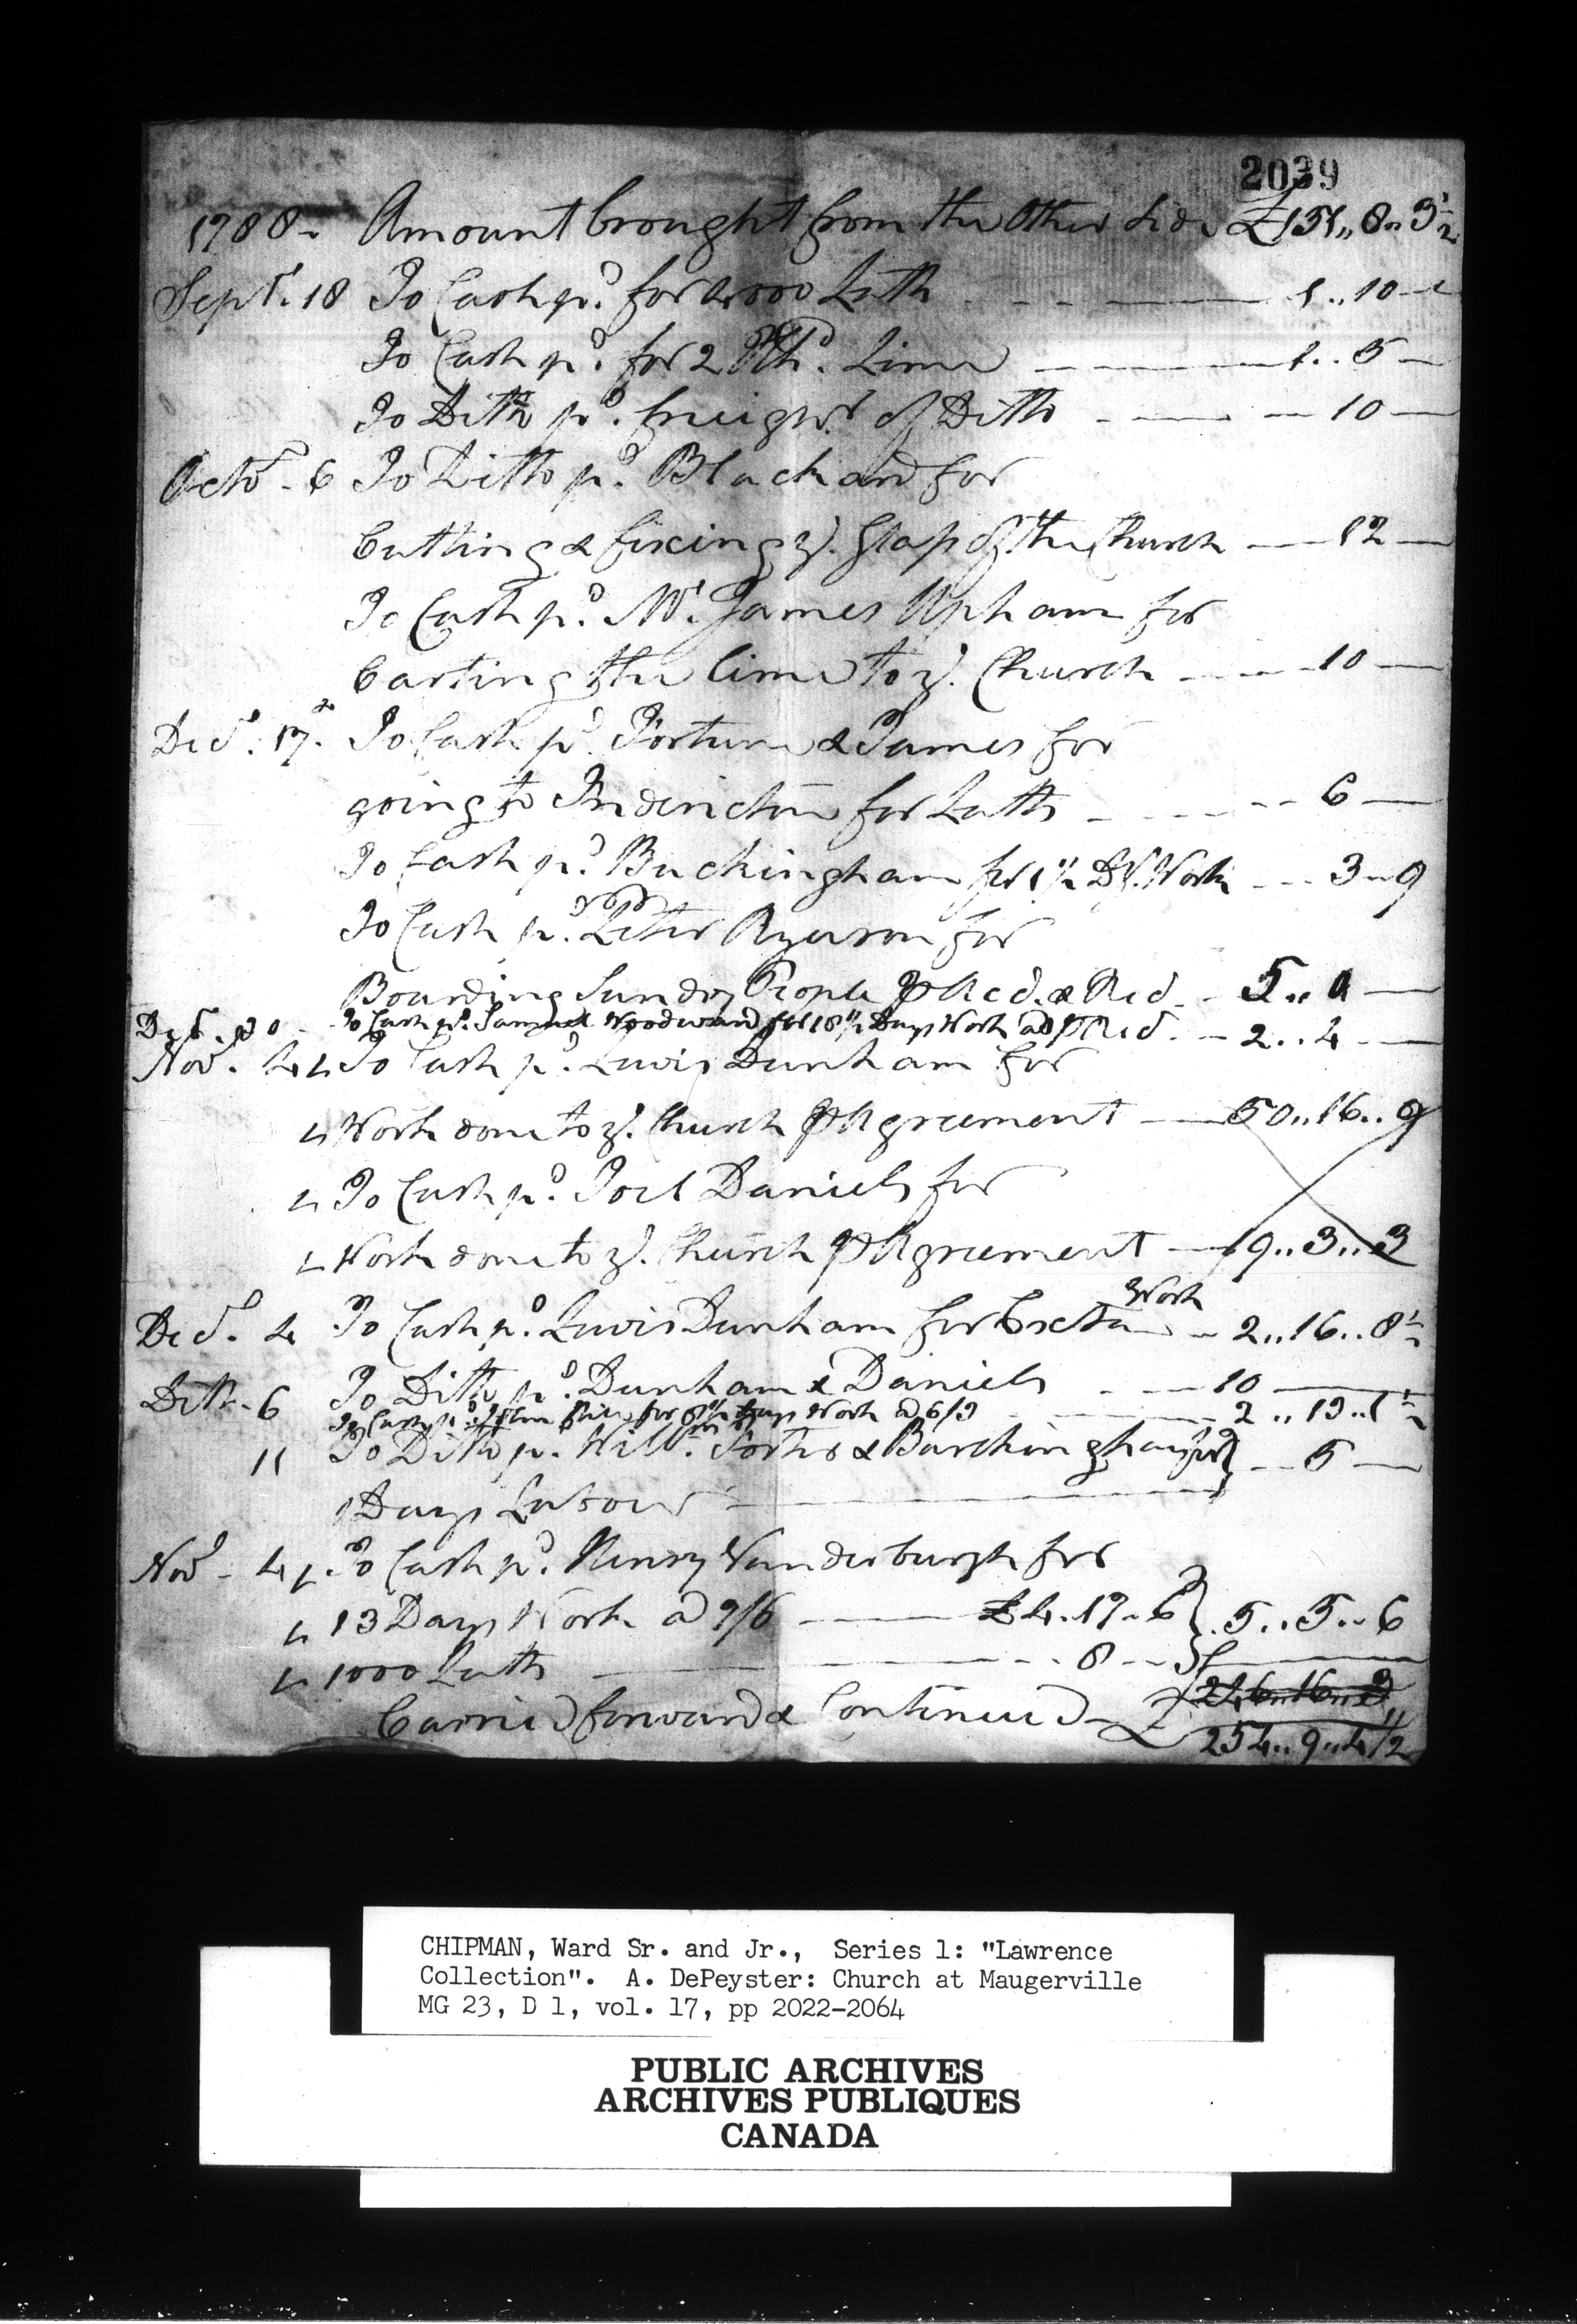 2039
1788 - Amount brought from the Other Side £151,, 8,, 3 1/2
Sept. 18 To Cash pd. for 4000 Lath - - - 1 .. 10 -
To Cash pd. for 2 Hhd. Lime - - 1 .. 5 -
To Ditto pd. freight of Ditto - - 10 -
Octor. 6 To Ditto pd. Blackard for
Cutting & fixing ye. Glass of the Church - 12 -
To Cash pd. Mr. James Upham for
Carting the lime to ye. Church - 10 -
Decr. 17. To Cash pd. Fortune & James for
going to Fredericton for Laths - - 6 -
To Cash pd. Buckingham for 1 1/2 Dys. Work - - 3 - 9
To Cash pd. Peter Ryerson for
Boarding Sundry People ⅌ Acd. & Recd. - 5 ,, 4 -
30 - To Cash pd. Samuel Woodward for 18 1/2 Days Work ⅌ Recd. - 2 .. 4 -
Novr. 4 To Cash pd. Lewis Dunham for
Work done to ye. Church ⅌ Agreement - 50 .. 16 .. 9
To Cash pd. Joel Daniels for
Work done to ye. Church ⅌ Agreement - 19 .. 3 .. 3
Work
Decr. 4 To Cash pd. Lewis Dunham for Extra - 2 .. 16 .. 8 1/2
Ditto - 6 To Ditto pd. Dunham & Daniels - - 10 -
To Cash pd. for 8 1/2 days Work a 6/3 - 2 ,, 13 .. 1 1/2
11 To Ditto pd. Willm. & Burchingham for } - - 5 -
Days Labour
Novr - 4 To Cash pd. Henry Vanderburgh for
13 Days Work a 7/6 - £4 .. 17 - 6 } 5 .. 5 .. 6
1000 Lath - - 8 - -
Carried forward & Continued - £ 246 ,, 16 ,, 3
254 .. 9 ,, 4 1/2
CHIPMAN, Ward Sr. and Jr., Series 1: "Lawrence
Collection". A. DePeyster: Church at Maugerville
MG 23, D 1, vol. 17, pp 2022-2064
PUBLIC ARCHIVES
ARCHIVES PUBLIQUES
CANADA